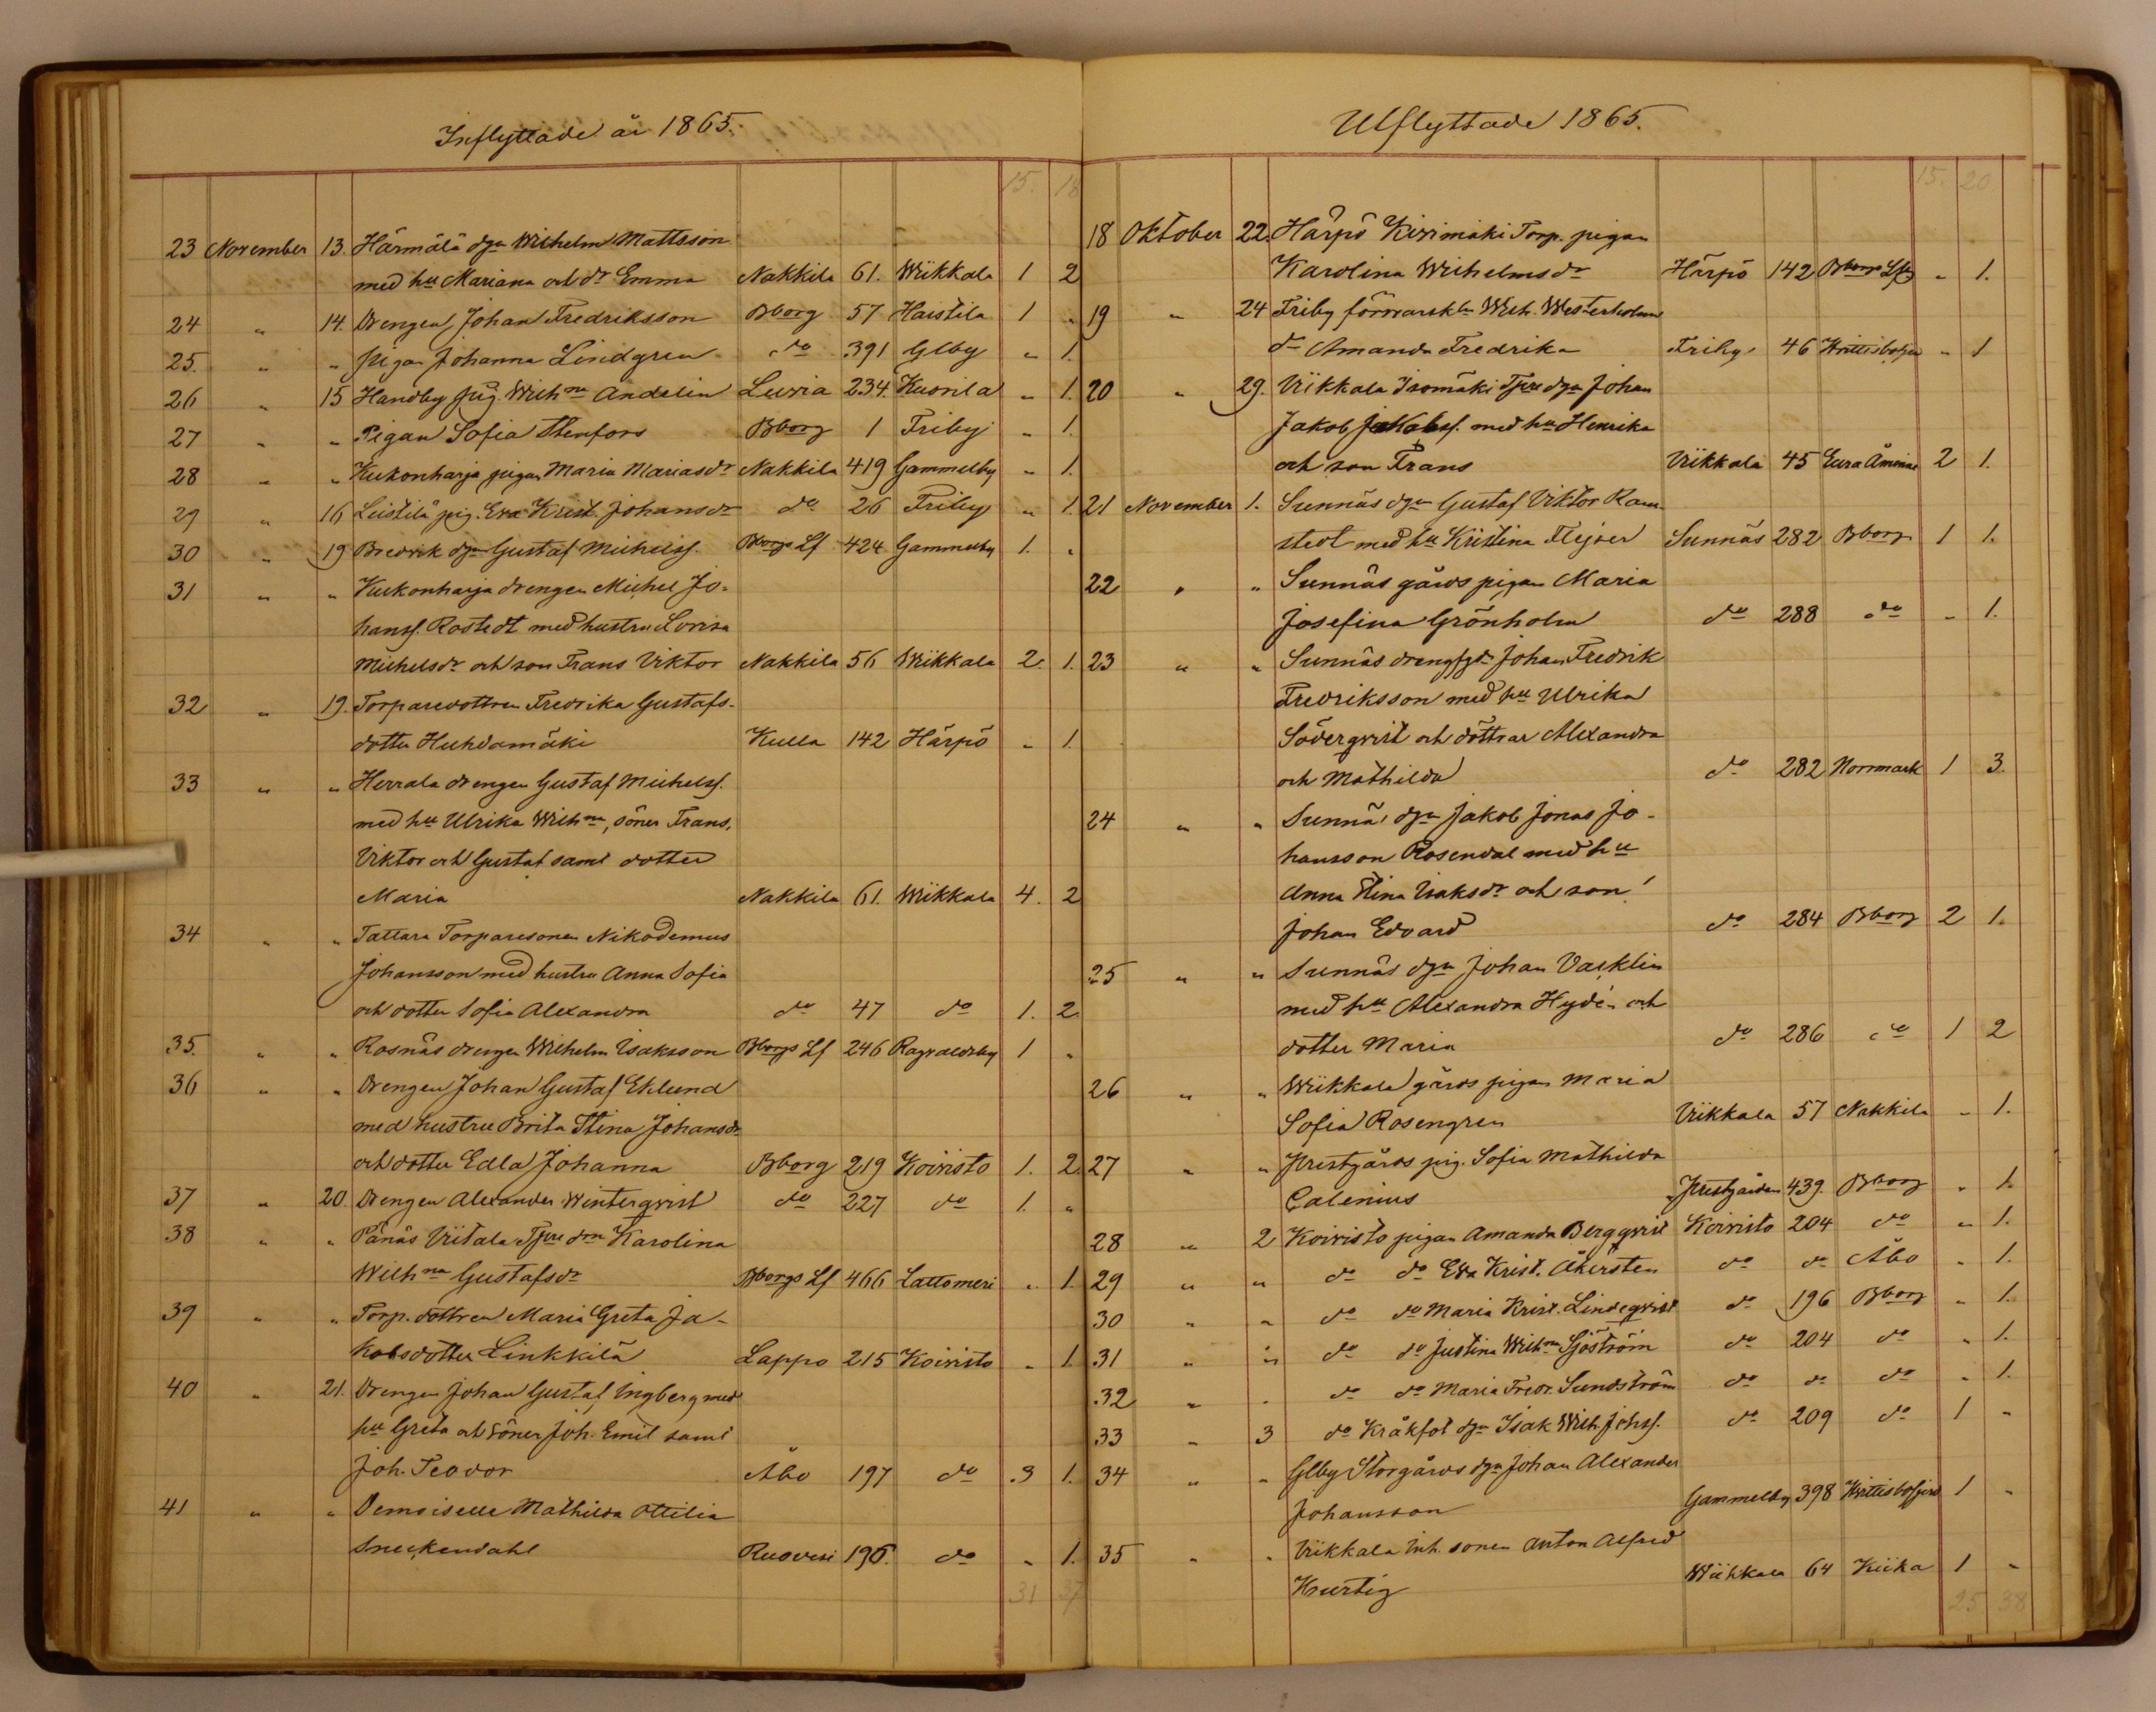 Inflyttade år 1865.
15. 18
23 November 13. Härmälä dgn Wilhelm Mattsson
med hu Mariana och dr Emma Nakkila 61. Wiikkala 1 2
24 " 14. Drengen Johan Fredriksson Bborg 57 Haistila 1 "
25. " " pigan Johanna Lindgren do 391 Glby " 1.
26 " 15 Handby pig. Wilhna Andelin Luvia 234. Kuorila " 1.
27 " " Pigan Sofia Thenfors Bborg 1 Friby " 1.
28 " " Kukonharja pigan Maria Mariasdr Nakkila 419 Gammelby " 1.
29 " 16 Leistilä pig. Eva Krist. Johansdr do 26 Friby " 1.
30 " 19 Bredvik dgn Gustaf Michelsf. Bborgs Lf 424 Gammelby 1. "
31 " " Kukonharja drengen Michel Jo-
hansf. Rostedt med hustru Lovisa
Michelsdr och son Frans Viktor Nakkila 56 Wiikkala 2. 1.
32 " 19. Torparedottren Fredrika Gustafs-
dotter Huhdamäki Kulla 142 Härpö " 1.
33 " " Herrala drengen Gustaf Michelsf.
med hu Ulrika Wilhna, söner Frans,
Viktor och Gustaf samt dotter
Maria Nakkila 61. Wiikkala 4. 2
34 " " Tattara Torparesonen Nikodemus
Johansson med hustru Anna Sofia
och dotter Sofia Alexandra do 47 do 1. 2.
35. " " Rosnäs drengen Wilhelm Isaksson Bborgs Lf 246 Ragvaldsby 1 "
36 " " Drengen Johan Gustaf Eklund
med hustru Brita Stina Johansdr
och dotter Edla Johanna Bborg 219 Koivisto 1. 2.
37 " 20. Drengen Alexander Winterqvist do 227 do 1. "
38 " " Pånäs Viitala Tpre drn Karolina
Wilhna Gustafsdr Bborgs Lf 466 Lattomeri " 1.
39 " " Torp. dottren Maria Greta Ja-
kobsdotter Linkkilä Lappo 215 Koivisto " 1.
40 " 21. Drengen Johan Gustaf Ingberg med
hu Greta och söner Joh. Emil samt
Joh. Teodor Åbo 197 do 3 1.
41 " " Demoiselle Mathilda Ottilia
Sneckendahl Ruovesi 196. do " 1.
31 37
Utflyttade 1865.
15. 20
18 Oktober 22. Härpö Kivimäki Torp. pigan
Karolina Wilhelmsdr Härpö 142 Bborgs Lfg " 1.
19 " 24 Friby Wilh. Westerholms
dr Amanda Fredrika Friby 46 " 1
20 " 29. Viikkala Isomäki Tpre dgn Johan
Jakob Jakobsf. med hu Henrika
och son Frans Viikkala 45 Eura Åminne 2 1.
21 November 1. Sunnäs dgn Gustaf Viktor Ram-
stedt med hu Kristina Flejser Sunnäs 282 Bborg 1 1.
22 " " Sunnäs gårds pigan Maria
Josefina Grönholm do 288 do " 1.
23 " " Sunnäs Johan Fredrik
Fredriksson med hu Ulrika
Söderqvist och döttrar Alexandra
och Mathilda do 282 Norrmark 1 3.
24 " " Sunnäs dgn Jakob Jonas Jo-
hansson Rosendal med hu
Anna Stina Isaksdr och son!
Johan Edvard do 284 Bborg 2 1.
25 " " Sunnäs dgn Johan Vacklin
med hu Alexandra Hydén och
dotter Maria do 286 do 1 2
26 " " Wiikkala gårds pigan Maria
Sofia Rosengren Viikkala 57 Nakkila " 1.
27 " " Prestgårds pig. Sofia Mathilda
Calenius Prestgården 439. Bborg " 1.
28 " 2 Koivisto pigan Amanda Bergqvist Koivisto 204 do " 1.
29 " " do do Eva Krist. Åkersten do do Åbo " 1.
30 " " do do Maria Krist. Lindeqvist do 196 Bborg " 1.
31 " " do do Justina Wilhna Sjöström do 204 do " 1.
32 " " do do Maria Fredr. Sundström do do do " 1.
33 " 3 do Kråkfot dgn Isak Wilh. Johsf. do 209 do 1 "
34 " " Glby Storgårds dgn Johan Alexander
Johansson Gammelby 398 1 "
35 " " Viikkala Inh. sonen Anton Alfred
Knurtig Wiikkala 64 Kiika 1 "
25 38